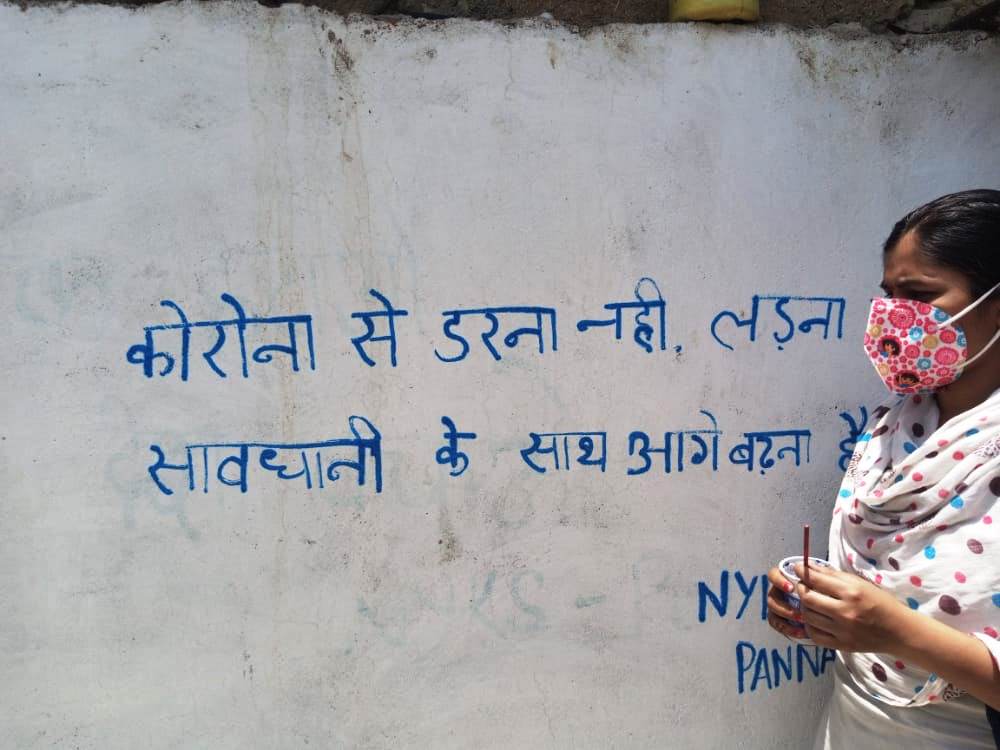 कोरोना से डरना नही, लड़ना
सावधानी के साथ आगे बढ़ना है
PANNA